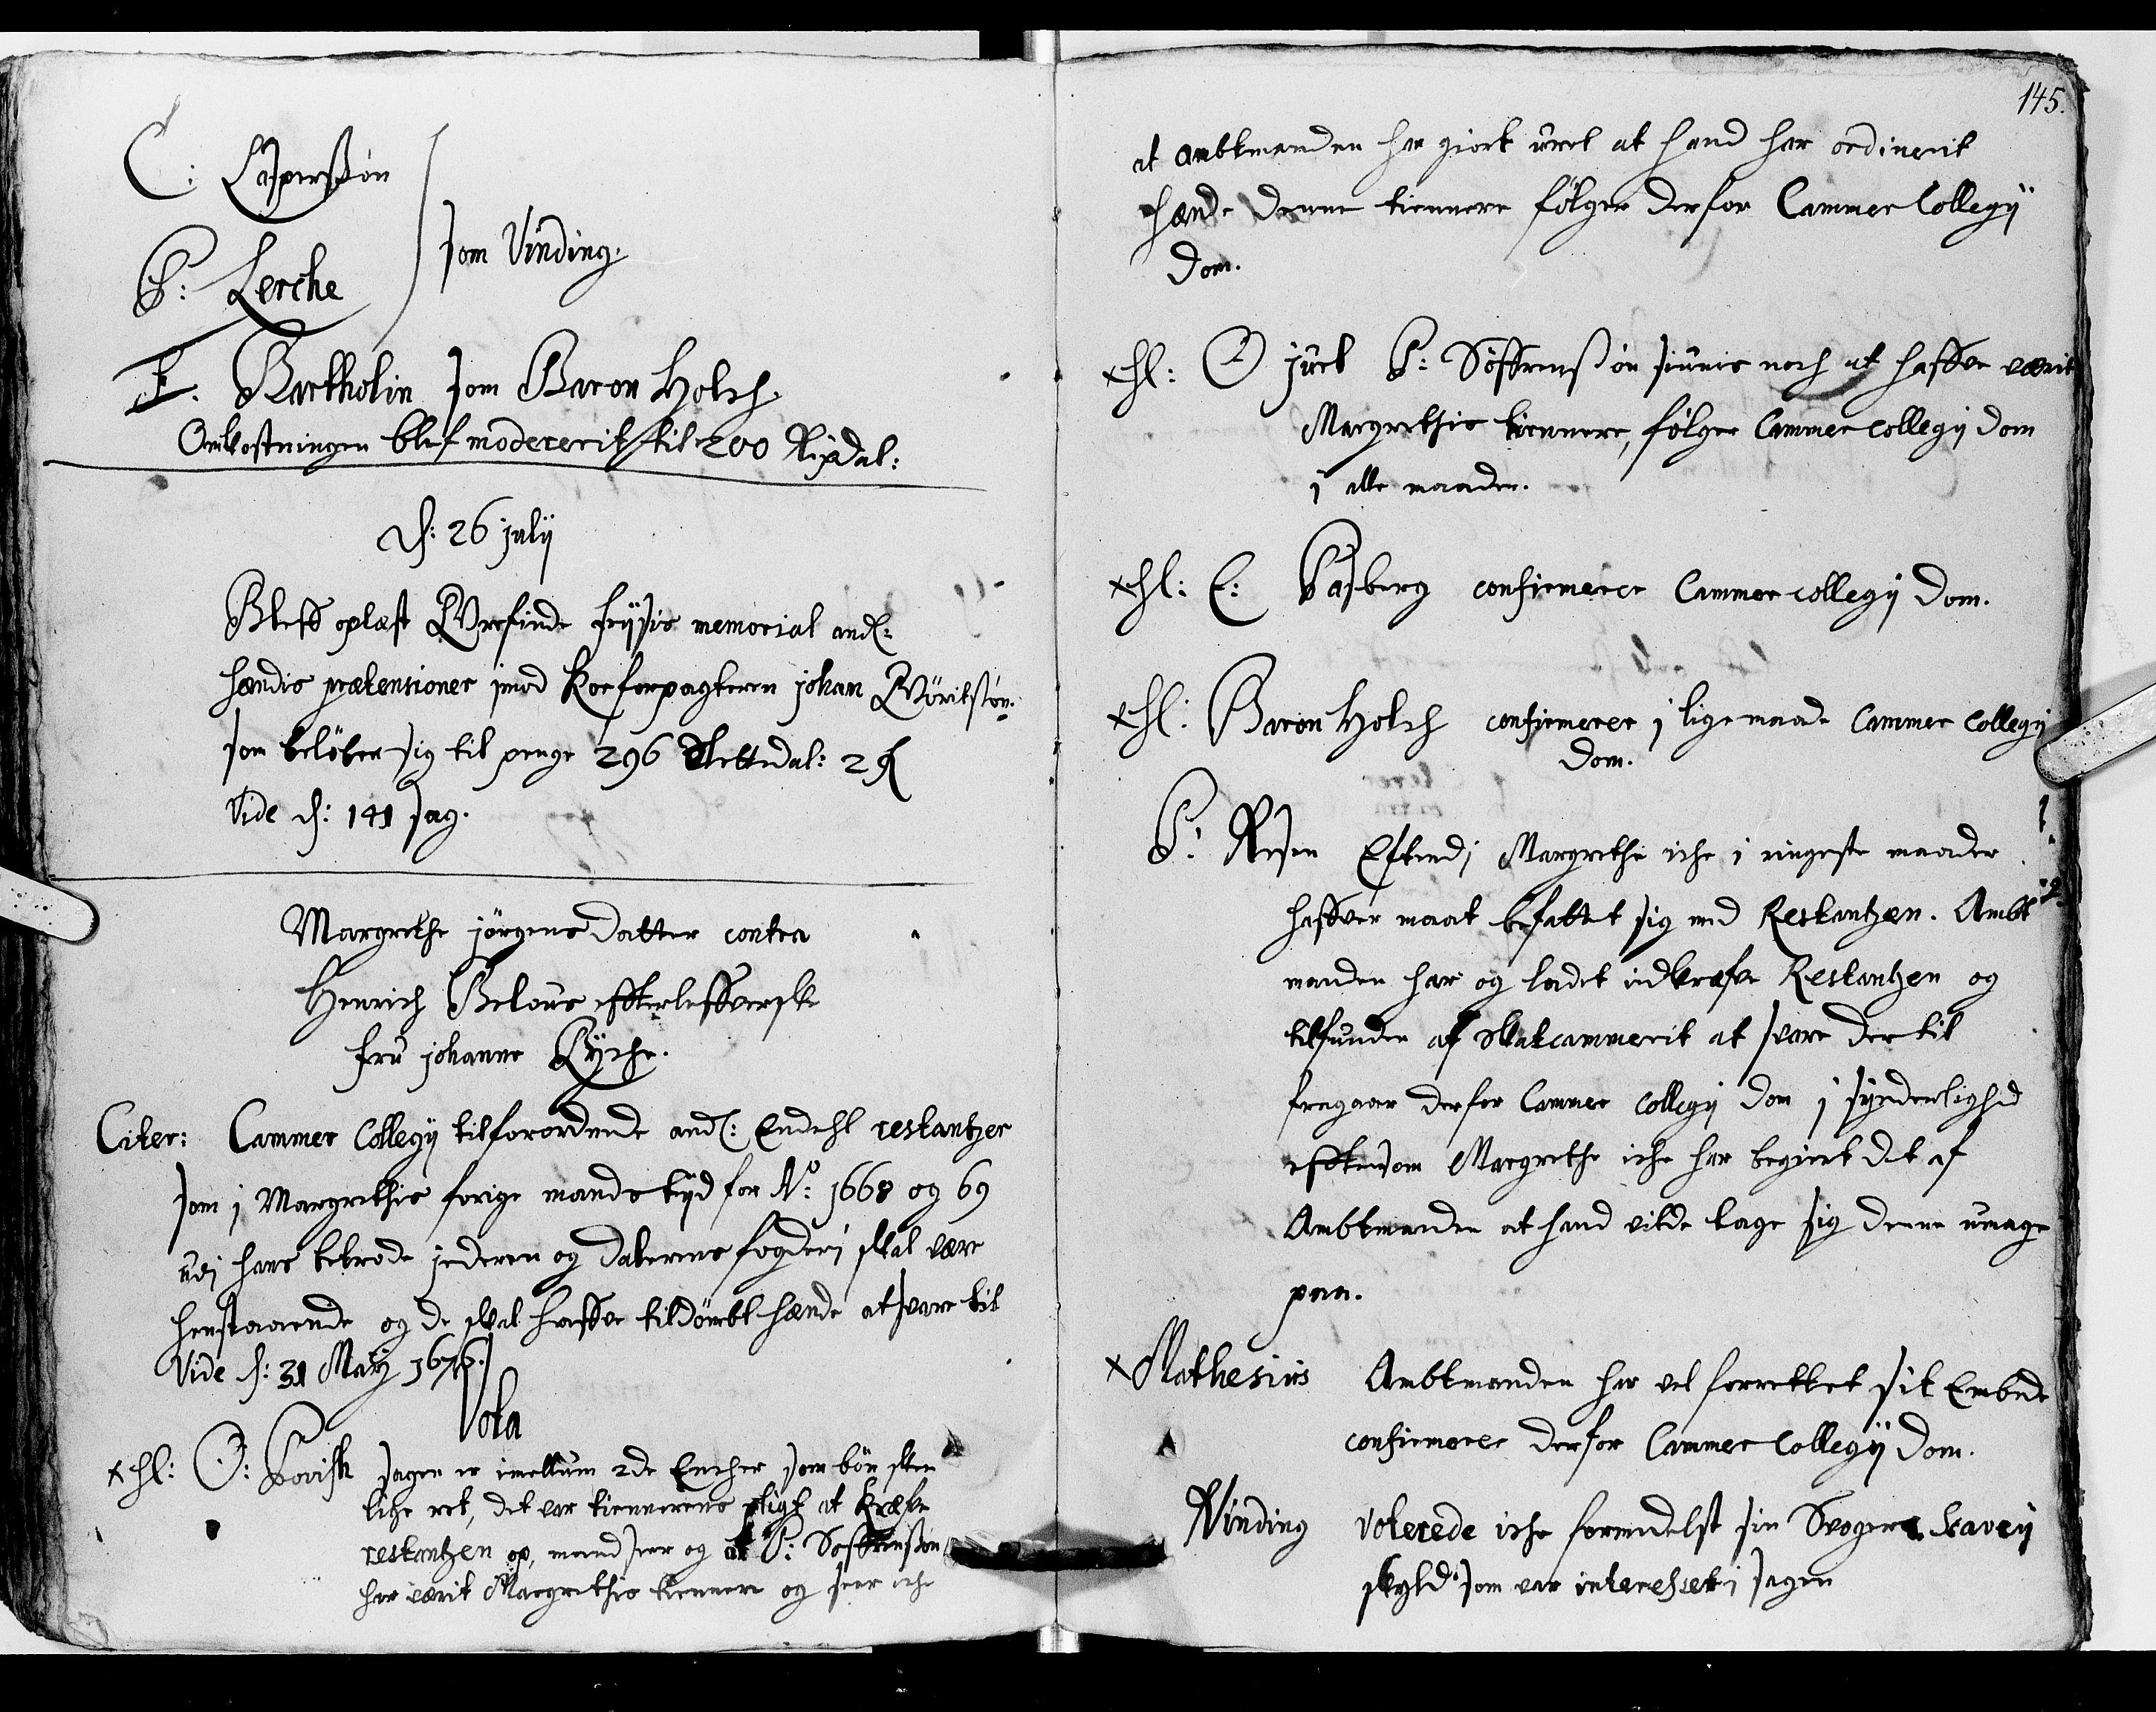 C: Casperßøn
P: Lerche
som Vinding.
T. Bartholin som Baron Holch.
Omkostningen blef modererit til 200 Rixdal:
d: 26 julij
Bleff oplæst Wrfinde friisis memorial and:
hændis prætensioner imod Korforpagteren johan Wörikstön.
som belöber sig til penge 296 Slettedal: 2
Vide d: 141 sag.
Margrethe jørgens Datter contra
Henrich Belous effterlefferske
fru johanne Rÿche.
Citer: Cammer Collegij tilforordnede and: Endehl restantzer
som i Margrethis forige mands tijd for Aº: 1668 og 69
udj hans betrode jederen og dalerens fogderi skal være
henstaaende og de skal haffve tildömbt hænde at svare til
Vide d: 31 Martj 1676.
Vota
x hl: O: Povisk sagen er imellum 2de Encher som bör sker
liche ret, det var tiennerens pligt at kræfve
restantzen op, mand seer og at P: Söffrenßøn
har værit Margrethis tiennere og seer iche
145.
at ambtmanden har giort uret at hand har ordinerit
hænde denne tiennere följger derfor Cammer Collegij
Dom.
x hl: O juel P: Söffrenßøn siunis noch at haffve værit
Margrethis tiennere, följger Cammer collegij dom
i alle maader.
x hl: E: Pasberg confirmerer Cammer collegij Dom.
x hl: Baron Holch confirmerer i lige maade Cammer Collegij
Dom.
P: Resen Efterdj Margrethe iche i ringeste maader
haffver maat befattet sig med Restantzen. Ambt
manden har og ladet indkræfve Restantzen og
tilfunden af Skatcammerit at svare der til
fragaar derfor Cammer collegij dom i synderlighed
effttersom Margrethe iche har begiert det af
Ambtmanden at hand vilde tage sig denne umage
paa.
x Mathesius Ambtmanden har vel forrettet sit Embede
confirmerer derfor Cammer Collegij Dom.
Vinding voterede iche formedelst sin Svoger Scavenij
skyld som var interesseret i sagen